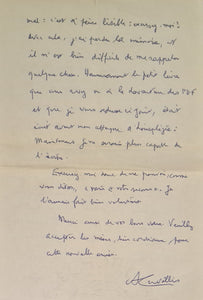 mal : c'est à peine lisible : excusez-moi !
cela, j'ai perdu la mémoire, et
il m'est bien difficile de me rappeler
quelque chose. Heureusement le petit livre
que vous avez eu à la
et que je vous ci-joint, était
écrit avant mon attaque d'hémiplégie :
Maintenant je ne serais plus capable de
l'écrire.
Excusez-moi donc de ne pouvoir, comme
vous dites, à votre . Je
l'aurais fait bien volontiers.
Merci aussi de vos bons vœux. Veuillez
accepter les miens, bien cordiaux, pour
cette nouvelle année.